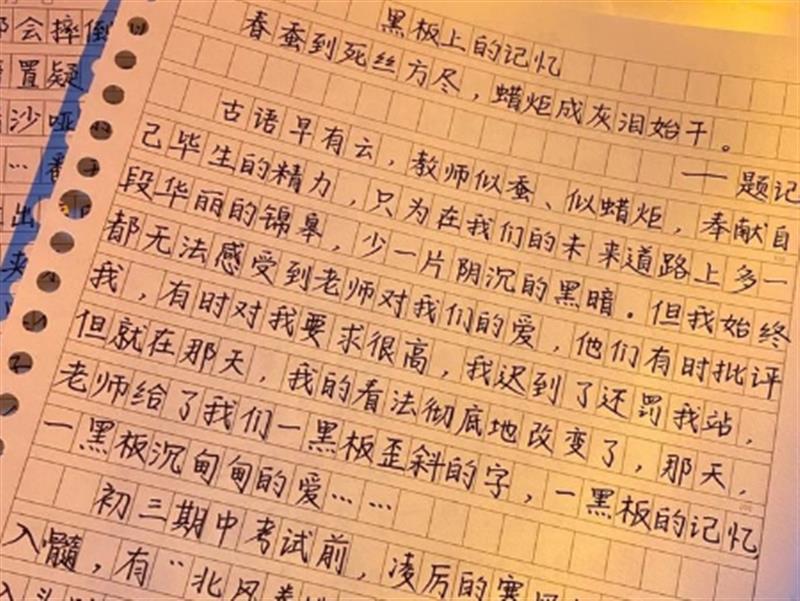 会摔倒
置疑
沙哑
出
夹
黑板上的记忆
春蚕到死丝方尽，蜡炬成灰泪始干。
——题记
古语早有云，教师似蚕、似蜡炬，奉献自
己毕生的精力，只为在我们的未来道路上多一
段华丽的锦皋，少一片阴沉的黑暗。但我始终
都无法感受到老师对我们的爱，他们有时批评
我，有时对我要求很高，我迟到了还罚我站，
但就在那天，我的看法彻底地改变了，那天，
老师给了我们一黑板歪斜的字，一黑板的记忆，
一黑板沉甸甸的爱……
初三期中考试前，凌厉的寒风
入髓，有“北风卷